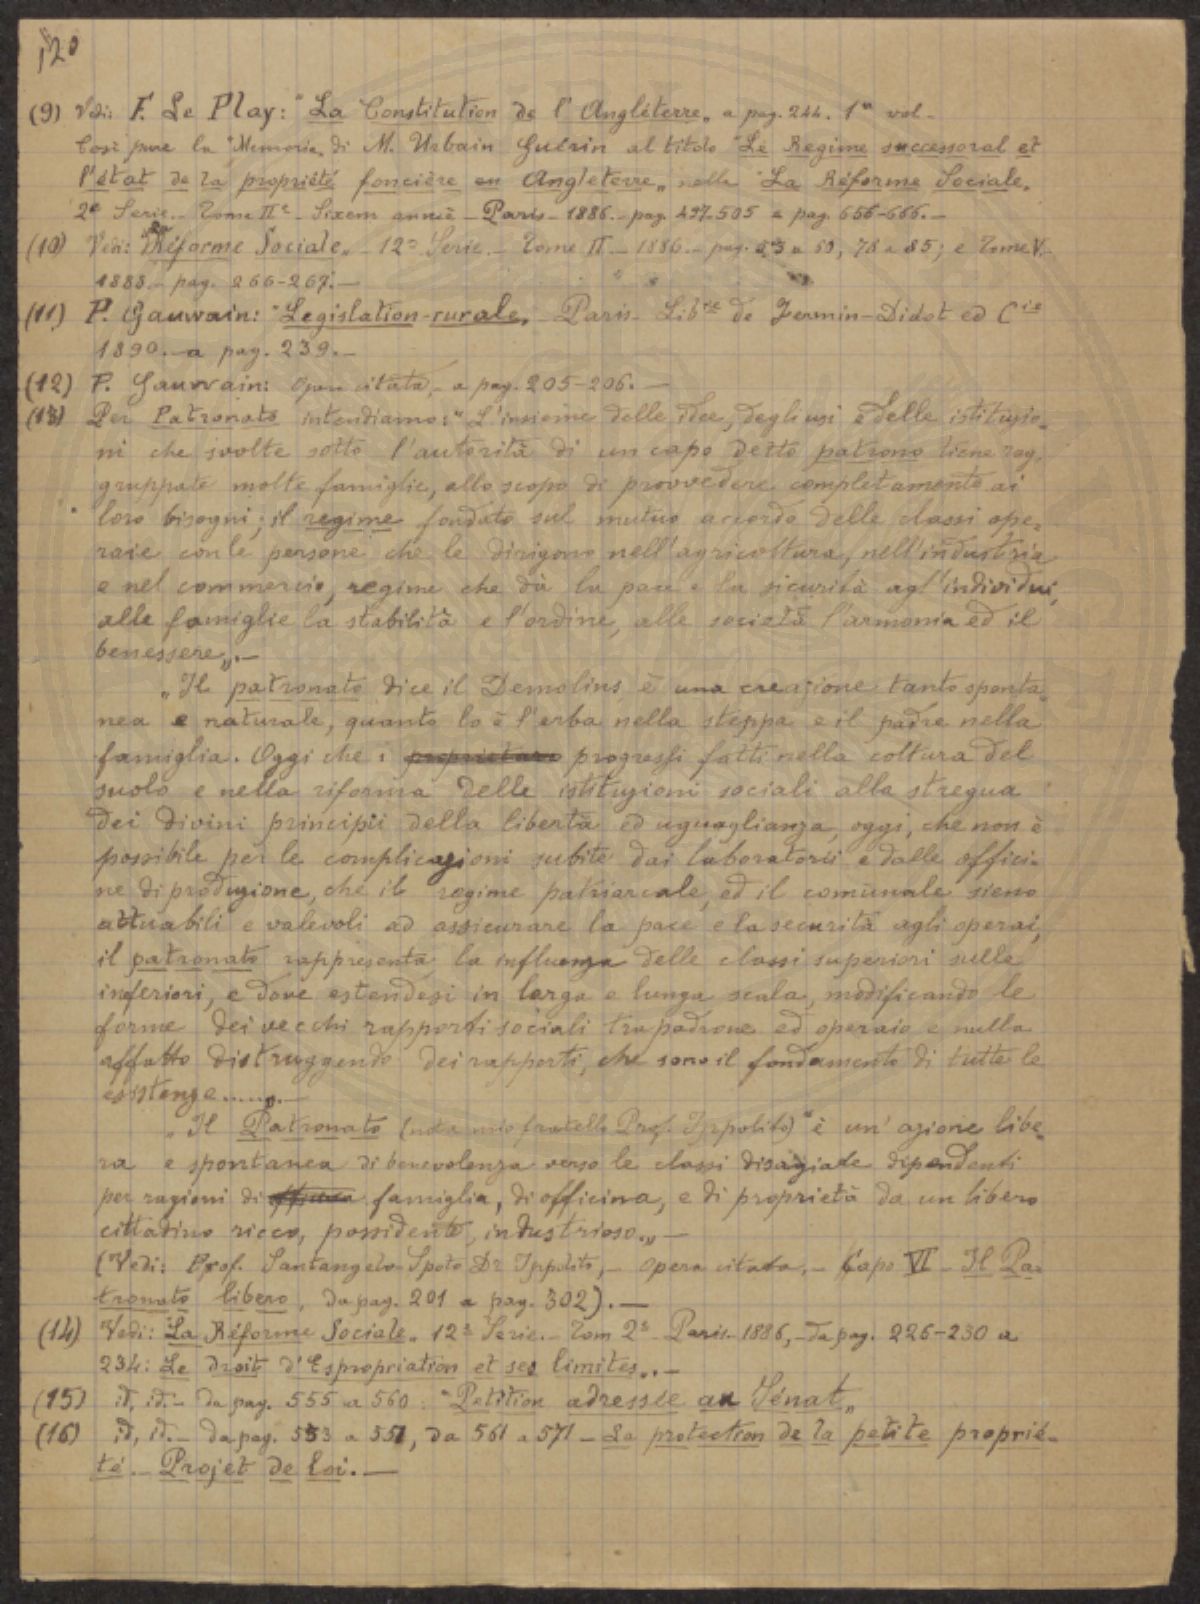 120
(9) Vedi: F. Le Play: "La Constitution de l'Angléterre„ a pag. 244. 1° vol.
Così pure la "Memoria„ di M. Urbain Guérin al titolo "Le Regime successoral et
l'état de la propriété foncière en Angleterre„ nella "La Réforme Sociale„
2ª Serie. Tome IIe - Sixem année - Paris - 1886. - pag. 497-505 e pag. 656-666. -
(10) Vedi: "Réforme Sociale„ - Serie. - Tome II - 1886. - pag. 53 a 59, 78 a 85; e Tome V.
1888 - pag. 266-267. -
(11) P. Gauwain: "Legislation-rurale„ - Paris - Librie de Fermin-Didot ed Cie
1890. - a pag. 239. -
(12) P. Gauwain: Opera citata, - a pag. 205-206. -
(13) Per Patronato intendiamo: "L'insieme delle idee, degli usi e delle istituzio-
ni che svolte sotto l'autorità di un capo detto patrono tiene rag-
gruppate molte famiglie, allo scopo di provvedere completamente ai
loro bisogni; il regime fondato sul mutuo accordo delle classi ope-
raie con le persone che le dirigono nell'agricoltura, nell'industria
e nel commercio, regime che dà la pace e la sicurità agl'individui,
alle famiglie la stabilità e l'ordine, alle società l'armonia ed il
benessere„. -
"Il patronato dice il Demolins è una creazione tanto sponta-
nea e naturale, quanto lo è l'erba nella steppa e il padre nella
famiglia. Oggi che i proprietari progressi fatti nella coltura del
suolo e nella riforma delle istituzioni sociali alla stregua
dei divini principii della libertà ed uguaglianza, oggi, che non è
possibile per le complicazioni subite dai laboratorii e dalle offici-
ne di produzione, che il regime patriarcale, ed il comunale sieno
attuabili e valevoli ad assicurare la pace e la securità agli operai,
il patronato rappresenta la influenza delle classi superiori sulle
inferiori, e dove estendesi in larga e lunga scala, modificando le
forme dei vecchi rapporti sociali tra padrone ed operaio e nulla
affatto distruggendo dei rapporti, che sono il fondamento di tutte le
esistenze......„. -
"Il Patronato (nota mio fratello Prof. Ippolito) "è un'azione libe-
ra e spontanea di benevolenza verso le classi disagiate dipendenti
per ragioni di famiglia, di officina, e di proprietà da un libero
cittadino ricco, possidente, industrioso.„ -
(Vedi: Prof. Santangelo Spoto Dr Ippolito, - opera citata, - Capo VI - Il Pa-
tronato libero, da pag. 201 a pag. 302). -
(14) Vedi: La Réforme Sociale„ 12ª Serie. - Tom 2° - Paris - 1886, - da pag. 226-230 a
234: Le droit d'Espropriation et ses limites„. -
(15) id, id. - da pag. 555 a 560: "Petition adressée au Sénat„
(16) id, id. - da pag. 553 a 551, da 561 a 571 - La protection de la petite proprié-
té - Projet de Loi. -